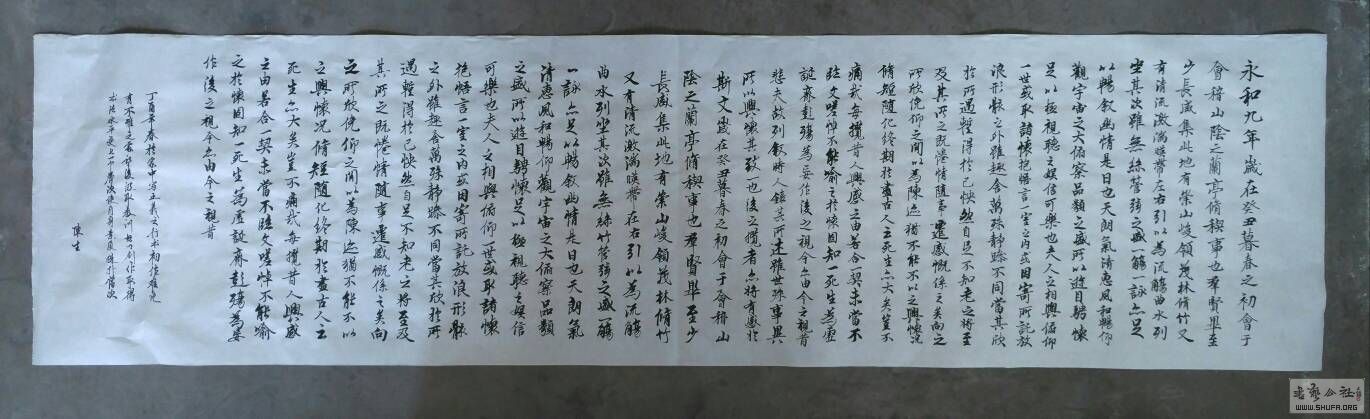 永和九年歲在癸丑暮春之初會于
會稽山陰之蘭亭脩稧事也羣賢畢至
少長咸集此地有崇山峻領茂林脩竹又
有清流激湍暎帶左右引以為流觴曲水列
坐其次雖無絲竹管弦之盛一觴一詠亦足
以暢敘幽情是日也天朗氣清惠風和暢仰
觀宇宙之大俯察品類之盛所以遊目騁懷
足以極視聽之娛信可樂也夫人之相與俯仰
一世或取諸懷抱悟言一室之內或因寄所託放
浪形骸之外雖趣舍萬殊靜躁不同當其欣
於所遇蹔得於己怏然自足不知老之將至
及其所之既惓情隨事遷感慨係之矣向之
所欣俛仰之間以為陳迹猶不能不以之興懷況
脩短隨化終期於盡古人云死生亦大矣豈不
痛哉每攬昔人興感之由若合一契未嘗不
臨文嗟悼不能喻之於懷固知一死生為虛
誕齊彭殤為妄作後之視今亦由今之視昔
悲夫故列敘時人錄其所述雖世殊事異
所以興懷其致一也後之攬者亦將有感於
斯文歲在癸丑暮春之初會于會稽山
陰之蘭亭脩稧事也羣賢畢至少
長咸集此地有崇山峻領茂林脩竹
又有清流激湍暎帶左右引以為流觴
曲水列坐其次雖無絲竹管弦之盛觴
一詠亦足以暢敘幽情是日也天朗氣
清惠風和暢仰觀宇宙之大俯察品類
之盛所以遊目騁懷足以極視聽之娛信
可樂也夫人之相與俯仰一世或取諸懷
抱悟言一室之內或因寄所託放浪形骸
之外雖趣舍萬殊靜躁不同當其欣於所
遇蹔得於己怏然自足不知老之將至及
其所之既惓情隨事遷感慨係之矣向
之所欣俛仰之間以為陳迹猶不能不以
之興懷況脩短隨化終期於盡古人云
死生亦大矣豈不痛哉每攬昔人興感
之由若合一契未嘗不臨文嗟悼不能喻
之於懷固知一死生為虛誕齊彭殤為妄
作後之視今亦由今之視昔
丁酉年春於家中写王羲之行书
陳生
WWW.SHUFA.ORG